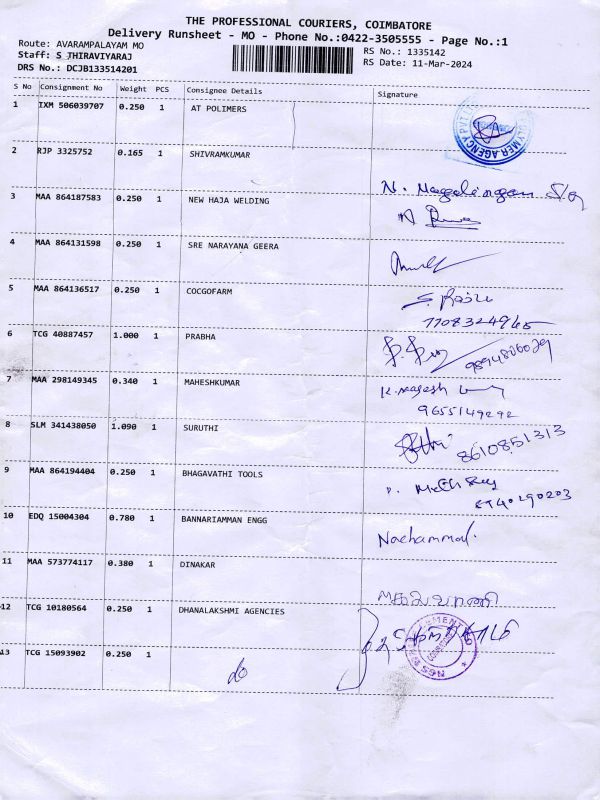 THE PROFESSIONAL COURIERS, COIMBATORE
Delivery Runsheet - MO - Phone No.:0422-3505555 - Page No.:1
Route: AVARAMPALAYAM MO
Staff: S THIRAVIYARAJ
DRS No.: DCJB133514201
RS No.: 1335142
RS Date: 11-Mar-2024
S No Consignment No Weight PCS Consignee Details Signature
1 IXM 506039707 0.250 1 AT POLIMERS
2 RJP 3325752 0.165 1 SHIVRAMKUMAR
3 MAA 864187583 0.250 1 NEW HAJA WELDING
4 MAA 864131598 0.250 1 SRE NARAYANA GEERA
5 MAA 864136517 0.250 1 COCGOFARM
7708324965
6 TCG 40887457 1.000 1 PRABHA
9894806029
7 MAA 298149345 0.340 1 MAHESHKUMAR
9655149292
8 SLM 341438050 1.090 1 SURUTHI
8610851313
9 MAA 864194404 0.250 1 BHAGAVATHI TOOLS
10 EDQ 15004304 0.780 1 BANNARIAMMAN ENGG
Nachammal.
11 MAA 573774117 0.380 1 DINAKAR
12 TCG 10180564 0.250 1 DHANALAKSHMI AGENCIES
13 TCG 15093902 0.250 1 do